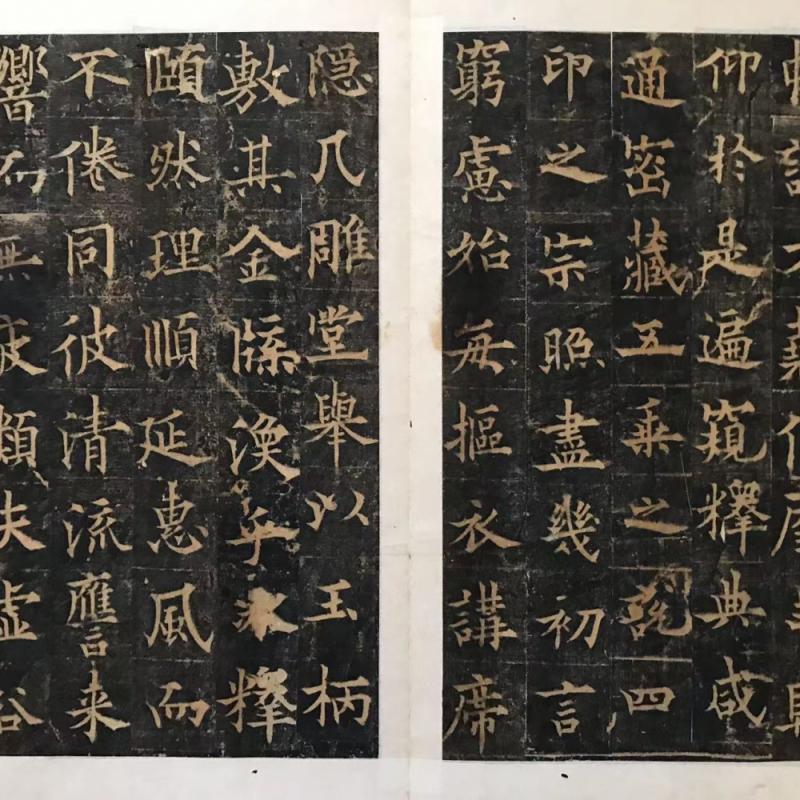 仰於是遍窺釋典咸
通密藏五乘之說四
印之宗照盡幾初言
窮慮始每摳衣講席
隱几雕堂舉以玉柄
敷其金牒渙乎冰釋
頤然理順延惠風而
不倦同彼清流應言来
響而無疲類夫虛谷